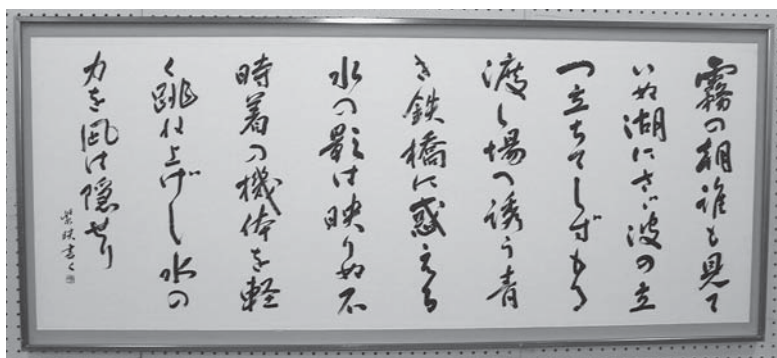 霧の朝誰も見て
いぬ湖にさゞ波の立
つ立ちてしずもる
渡し場へ誘う青
き鉄橋に惑える
水の影は映りぬ不
時着の機体を軽
く跳ね上げし水の
力を凪は隠せり